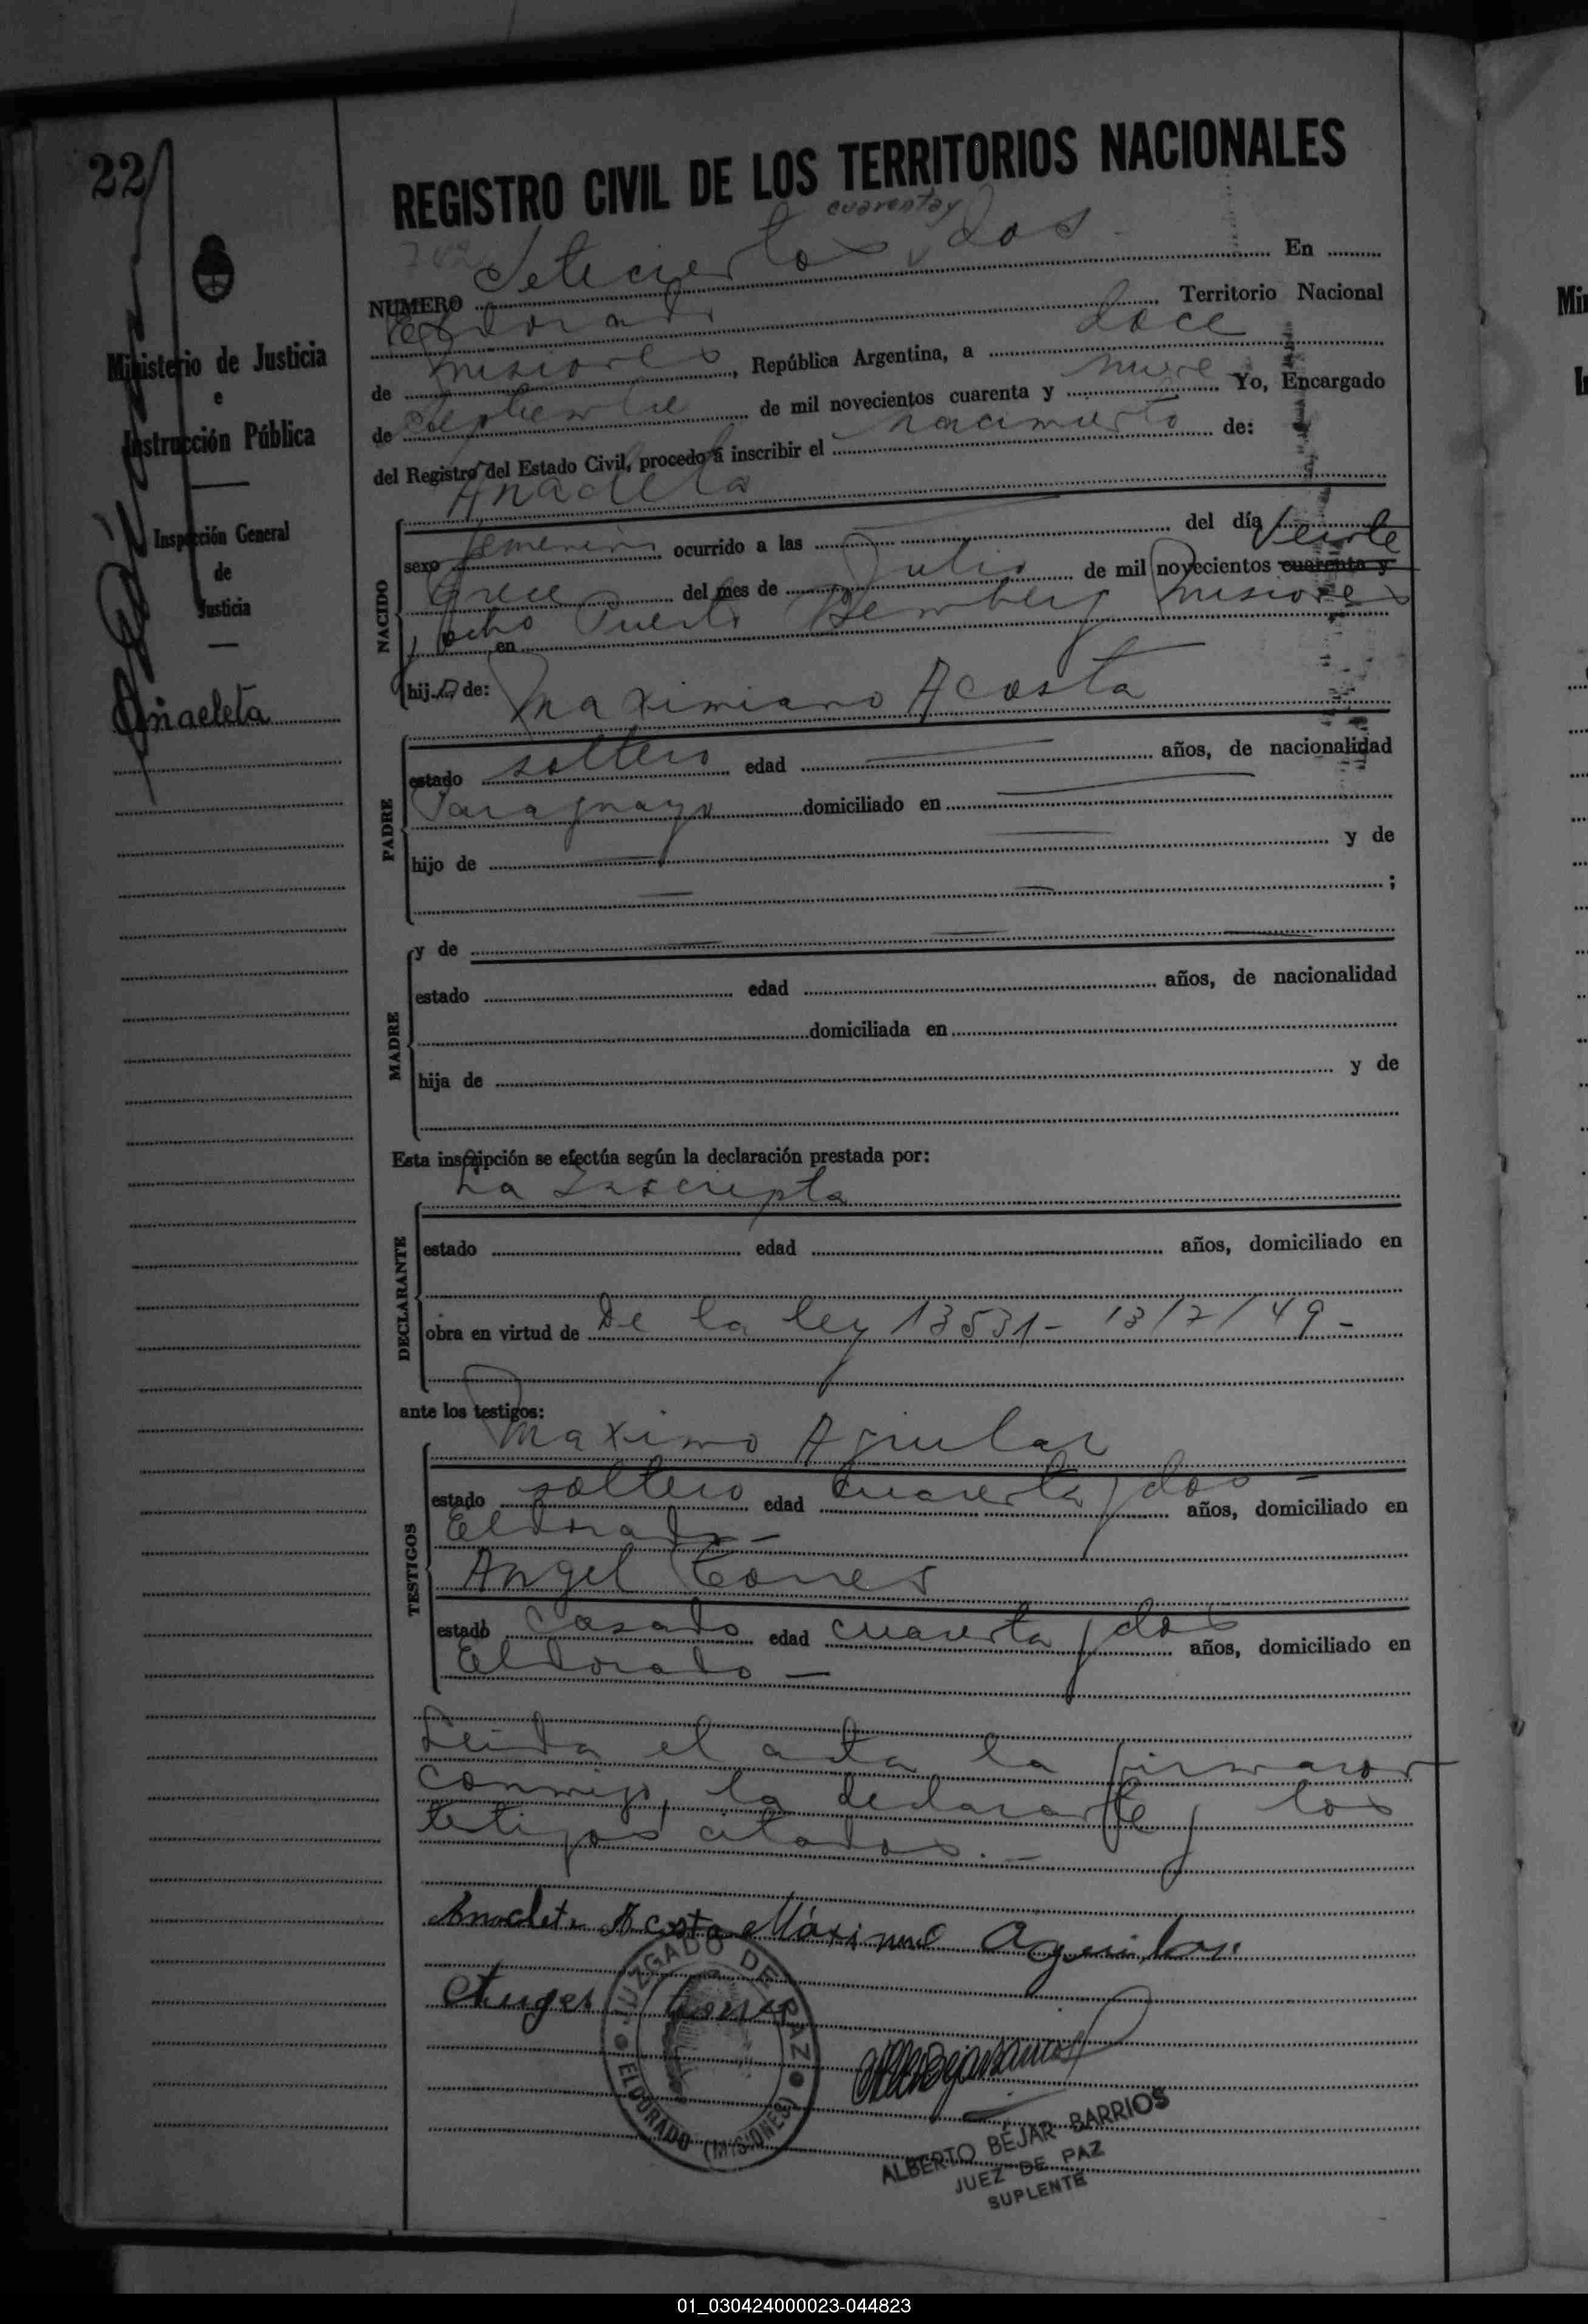 22
REGISTRO CIVIL DE LOS TERRITORIOS NACIONALES
cuarenta y
702
NUMERO Setecientos dos En
Eldorado, Territorio Nacional
de Misiones, República Argentina, a doce
de Septiembre de mil novecientos cuarenta y nueve Yo, Encargado
del Registro del Estado Civil, procedo a inscribir el nacimiento de:
Ministerio de Justicia
e
Instrucción Pública
Inspección General
de
Justicia
Anacleta
NACIDO
sexo femenino ocurrido a las del día
trece del mes de Julio de mil novecientos cuarenta y
Veinte
y ocho en Puerto Bemberg Misiones
hija de: Maximiano Acosta
PADRE
estado soltero edad años, de nacionalidad
Paraguayo domiciliado en
hijo de y de
;
MADRE
y de
estado edad años, de nacionalidad
domiciliada en
hija de y de
Esta inscripción se efectúa según la declaración prestada por:
La Inscripta
DECLARANTE
estado edad años, domiciliado en
obra en virtud de De la ley 13531- 13/7/49-
ante los testigos:
Maximo Aguilar
TESTIGOS
estado soltero edad cuarenta y dos - años, domiciliado en
Eldorado -
Angel Torres
estado casado edad cuarenta y dos años, domiciliado en
Eldorado -
Leida el acta la firmaron
conmigo, la declarante y los
testigos citados. -
Anacleta Acosta Máximo Aguilar
Angel Torres
JUZGADO DE PAZ
ELDORADO (MISIONES)
ALBERTO BÉJAR BARRIOS
JUEZ DE PAZ
SUPLENTE
Mi
01_030424000023-044823